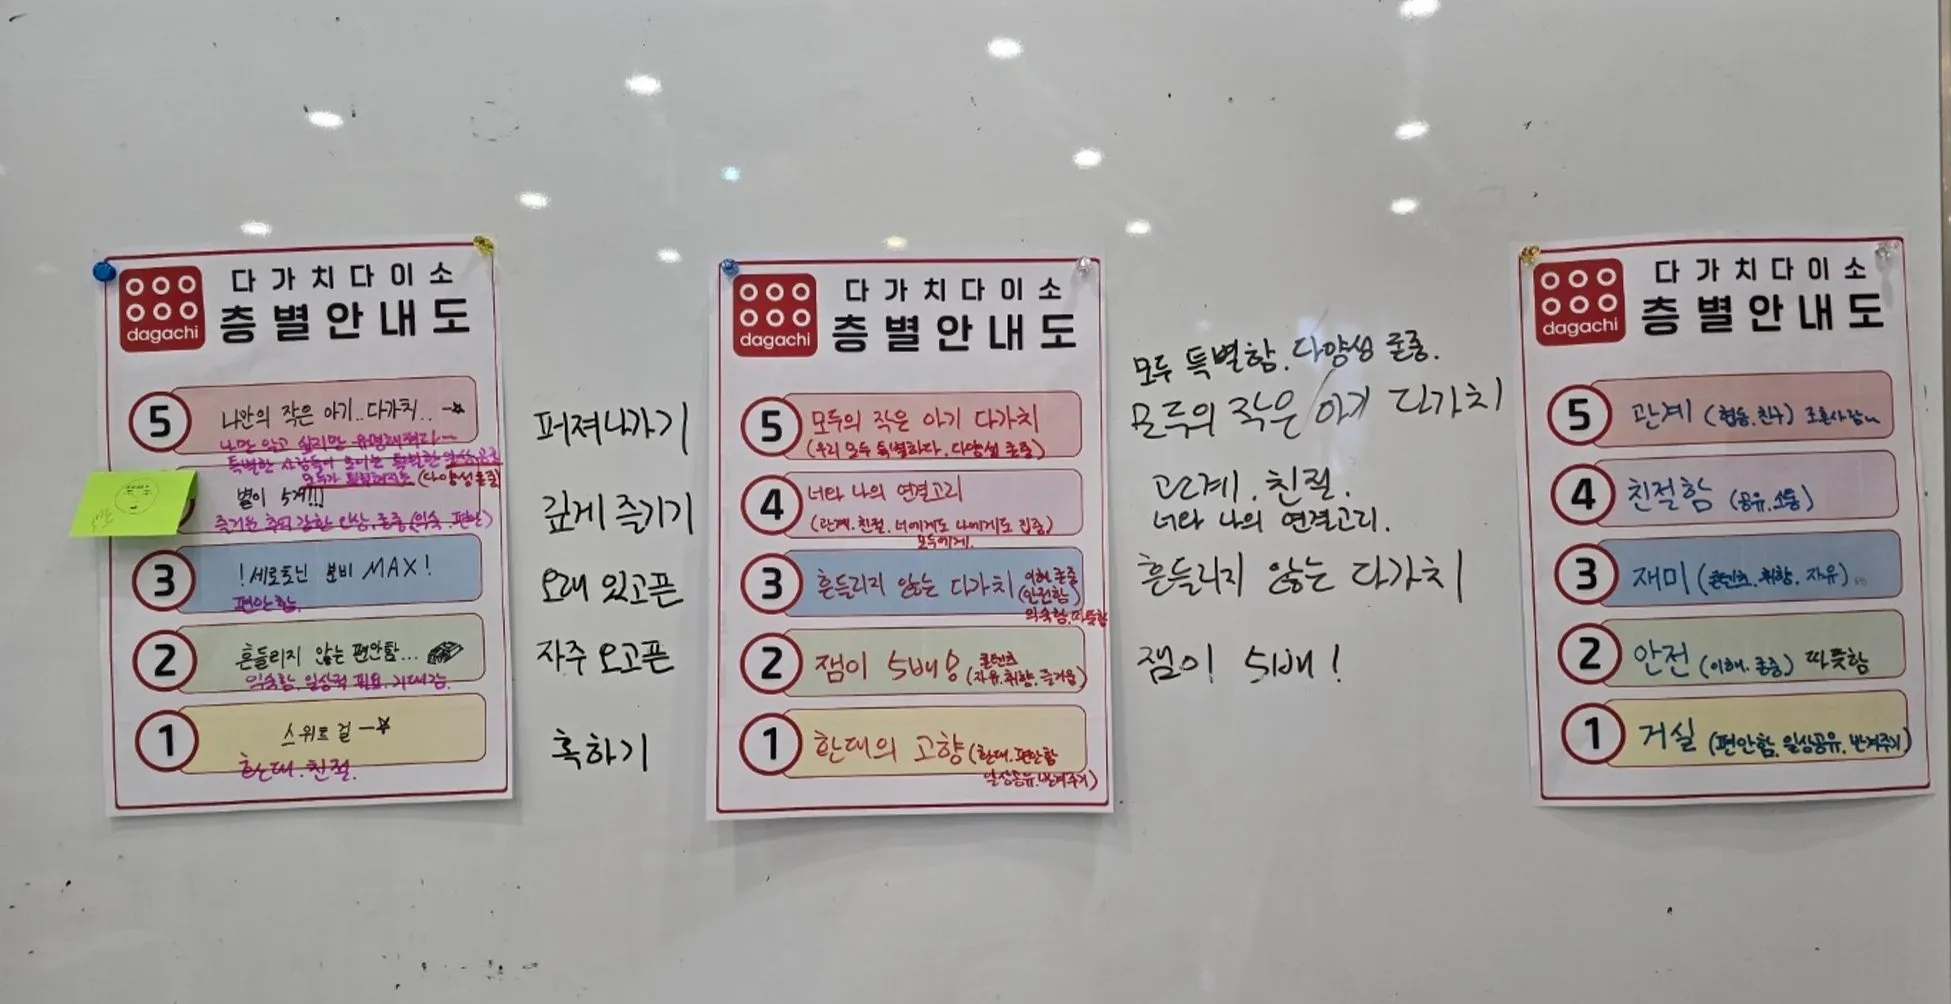 dagachi
다가치다이소
층별안내도
5
나만의 작은 아기..다가치..
나만 알고 싶지만 유명해져라~
특별한 사람들이 모이는 특별한 일상공간
모두가 특별해지는 (다양성 존중)
별이 5개!!!
즐거운 추억 강한 인상, 존중 (익숙, 편안)
3
!세로토닌 분비 MAX!
편안함.
2
흔들리지 않는 편안함...
익숙함. 일상적 필요. 기대감.
1
스위트 걸
환대. 친절.
퍼져나가기
깊게 즐기기
오래 있고픈
자주 오고픈
혹하기
dagachi
다가치다이소
층별안내도
5
모두의 작은 아기 다가치
(우리 모두 특별하다. 다양성 존중)
4
너와 나의 연결고리
(관계. 친절. 너에게도 나에게도 집중)
모두에게.
3
흔들리지 않는 다가치 (이해. 존중
안전함)
익숙함. 따뜻함
2
잼이 5배! 콘텐츠
(자유. 취향. 즐거움)
1
환대의 고향 (환대. 편안함
일상공유. 반겨주기)
모두 특별함. 다양성 존중.
모두의 작은 아기 다가치
관계. 친절.
너와 나의 연결고리.
흔들리지 않는 다가치
잼이 5배!
dagachi
다가치다이소
층별안내도
5
관계 (협동. 친구)
4
친절함 (공유. 소통)
3
재미 (콘텐츠. 취향. 자유)
2
안전 (이해. 존중) 따뜻함
1
거실 (편안함. 일상공유. 반겨주기)